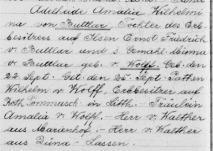 Adelheid Amalia Wilhelmi-
ne von Buttlar, Tochter des Erb-
besitzers auf Ilsen Ernst Friedrich
v. Buttlar und s. Gemahl.
v. Buttlar geb. v. Wolff. Geb. den
22. Sept. Get. den 25. Sept. Pathen
Wilhelm v. Wolff, Erbbesitzer auf
in Litth. - Fräulein
Amalia v. Wolff. - Herr v. Walther
aus Marienhof. - Herr v. Walther
aus Düna - Lassen.